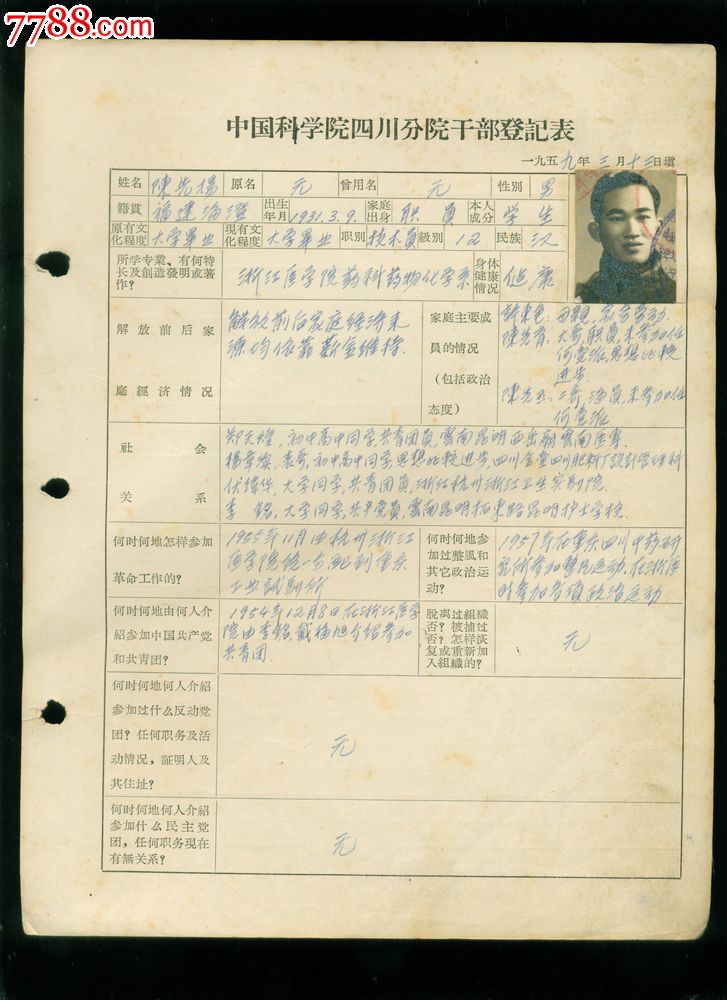 7788.com
中国科学院四川分院干部登記表
一九五九年三月十三日填
姓名 陳先楊 原名 无 曾用名 无 性別 男
籍貫 福建海澄 出生年月 1931.3.9. 家庭出身 职員 本人成分 学生
原有文化程度 大学畢业 現有文化程度 大学畢业 职別 技术員 級別 12 民族 汉
所学专業、有何特长及創造發明或著作? 浙江医学院药科药物化学系 身体健康情况 健康
解放前后家庭經济情况
解放前后家庭经济来
源均依靠薪金維持.
家庭主要成員的情况(包括政治态度)
母親,家务劳动.
陳先育:大哥,职員,未参加任
何党派,思想比較
进步
二哥,海員,未参加任
何党派
社会关系
郑天煌,初中高中同学,共青团員,雲南昆明西岳廟雲南医專.
表哥,初中高中同学,思想比較进步,四川金堂四川肥料厂設計管理科
大学同学,共青团員,浙江杭州浙江卫生实驗院.
李銘,大学同学,共产党員,雲南昆明拓东路昆明护士学校.
何时何地怎样参加革命工作的?
1955年11月由杭州浙江
医学院統一分配到重庆
工业試驗所
何时何地参加过整風和其它政治运动?
1957年在重庆四川中药研
究所参加整風运动.在浙医
时参加各項政治运动
何时何地由何人介紹参加中国共产党和共青团?
1954年12月8日在浙江医学
院由李銘,戴楊旭介绍参加
共青团.
脱离过組織否?被捕过否?怎样恢复或重新加入組織的? 无
何时何地何人介紹参加过什么反动党团?任何职务及活动情况,証明人及其住址? 无
何时何地何人介紹参加什么民主党团,任何职务現在有無关系? 无